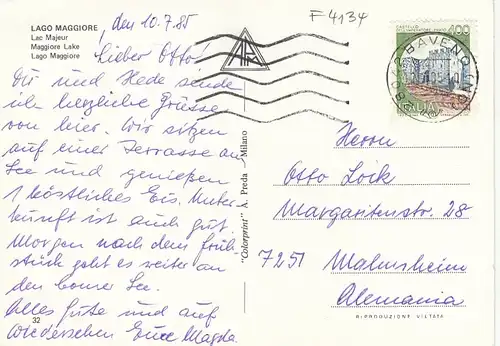 LAGO MAGGIORE
Lac Majeur
Maggiore Lake
Lago Maggiore
, den 10.7.85
Lieber Otto!
Dir und Hede sende
ich herzliche Grüsse
von hier. Wir sitzen
auf einer Terrasse am
See und genießen
1 köstliches Eis. Unter-
kunft ist auch gut.
Morgen nach dem Früh-
stück geht es weiter an
den Comer See.
Alles Gute und auf
Wiedersehen Eure Magda.
32
"Colorprint" A. Preda - Milano
F 4134
400
BAVENO
Herrn
Otto Löck
Margaritenstr. 28
7251 Malmsheim
Alemania
RIPRODUZIONE VIETATA